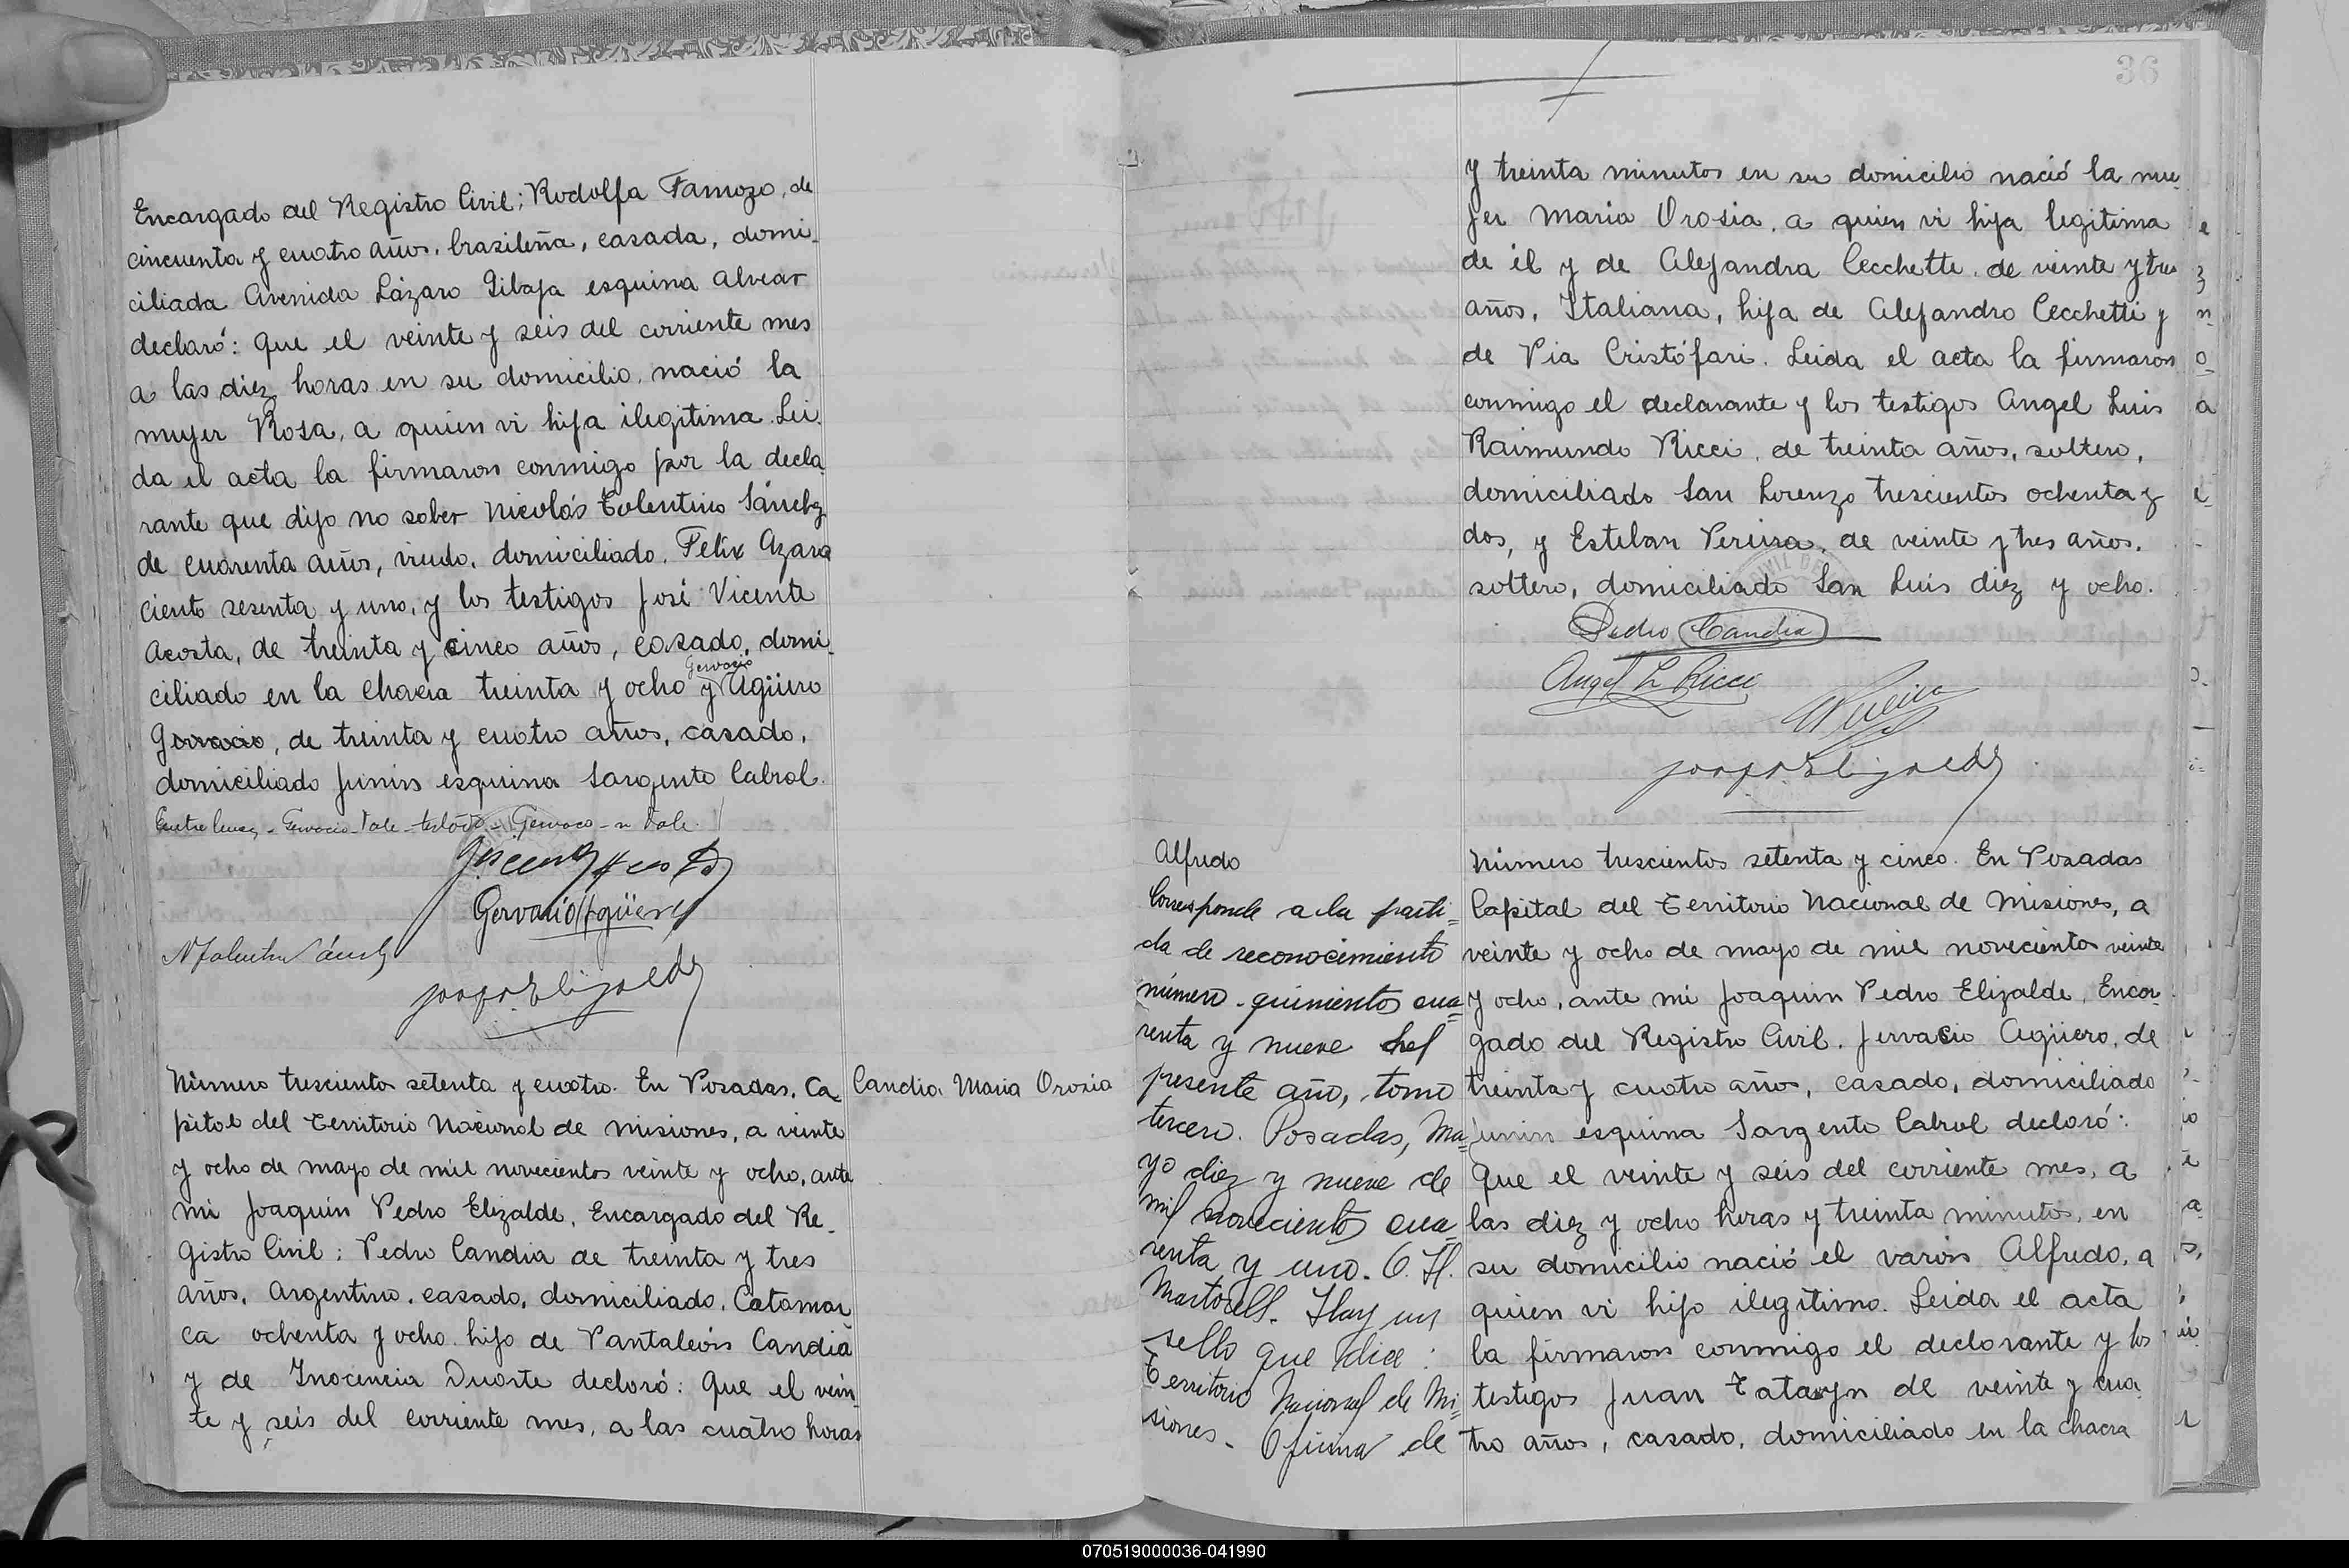 Encargado del Registro Civil; Rodolfa Famozo, de
cincuenta y cuatro años, brasileña, casada, domi-
ciliada Avenida Lázaro Gibaja esquina Alvear
declaró: Que el veinte y seis del corriente mes
a las diez horas en su domicilio, nació la
mujer Rosa, a quien vi hija ilegitima. Lei-
da el acta la firmaron conmigo por la decla-
rante que dijo no saber Nicolás Tolentino Sánchez
de cuarenta años, viudo, domiciliado, Felix Azara
ciento sesenta y uno, y los testigos José Vicente
Acosta, de treinta y cinco años, casado, domi-
Gervacio
ciliado en la chacra treinta y ocho y Agüero
Gervacio, de treinta y cuatro años, casado,
domiciliado Junin esquina Sargento Cabral.
Entre lineas - Gervacio - Vale - testado - Gervacio - n Vale.
Gervacio Agüero
Número trescientos setenta y cuatro. En Posadas, Ca
pital del Territorio Nacional de Misiones, a veinte
y ocho de mayo de mil novecientos veinte y ocho, ante
mi Joaquin Pedro Elizalde, Encargado del Re-
gistro Civil; Pedro Candia de treinta y tres
años, Argentino, casado, domiciliado, Catamar
ca ochenta y ocho hijo de Pantaleón Candia
y de Inocencia Duarte declaró: Que el vein-
te y seis del corriente mes, a las cuatro horas
Candia Maria Orosia
36
y treinta minutos en su domicilio nació la mu-
jer Maria Orosia, a quien vi hija legitima
de él y de Alejandra Cecchette, de veinte y tres
años, Italiana, hija de Alejandro Cecchetti y
de Pia Cristófari. Leida el acta la firmaron
conmigo el declarante y los testigos Angel Luis
Raimundo Ricci, de treinta años, soltero,
domiciliado San Lorenzo trescientos ochenta y
dos, y Esteban Pereira, de veinte y tres años,
soltero, domiciliado San Luis diez y ocho.
Pedro Candia
Angel L Ricci
Alfredo
Corresponde a la parti=
da de reconocimiento
número quinientos cua=
renta y nueve del
presente año, tomo
tercero. Posadas, Ma=
yo diez y nueve de
mil novecientos cua=
renta y uno. O. H.
Martorell. Hay un
sello que dice:
Territorio Nacional de Mi=
siones - Oficina de
Número trescientos setenta y cinco. En Posadas
Capital del Territorio Nacional de Misiones, a
veinte y ocho de mayo de mil novecientos veinte
y ocho, ante mi Joaquin Pedro Elizalde, Encar-
gado del Registro Civil, Jervasio Agüero, de
treinta y cuatro años, casado, domiciliado
Junin esquina Sargento Cabral declaró:
Que el veinte y seis del corriente mes, a
las diez y ocho horas y treinta minutos, en
su domicilio nació el varón Alfredo, a
quien vi hijo ilegitimo. Leida el acta
la firmaron conmigo el declarante y los
testigos Juan Tataryn de veinte y cua-
tro años, casado, domiciliado en la chacra
070519000036-041990